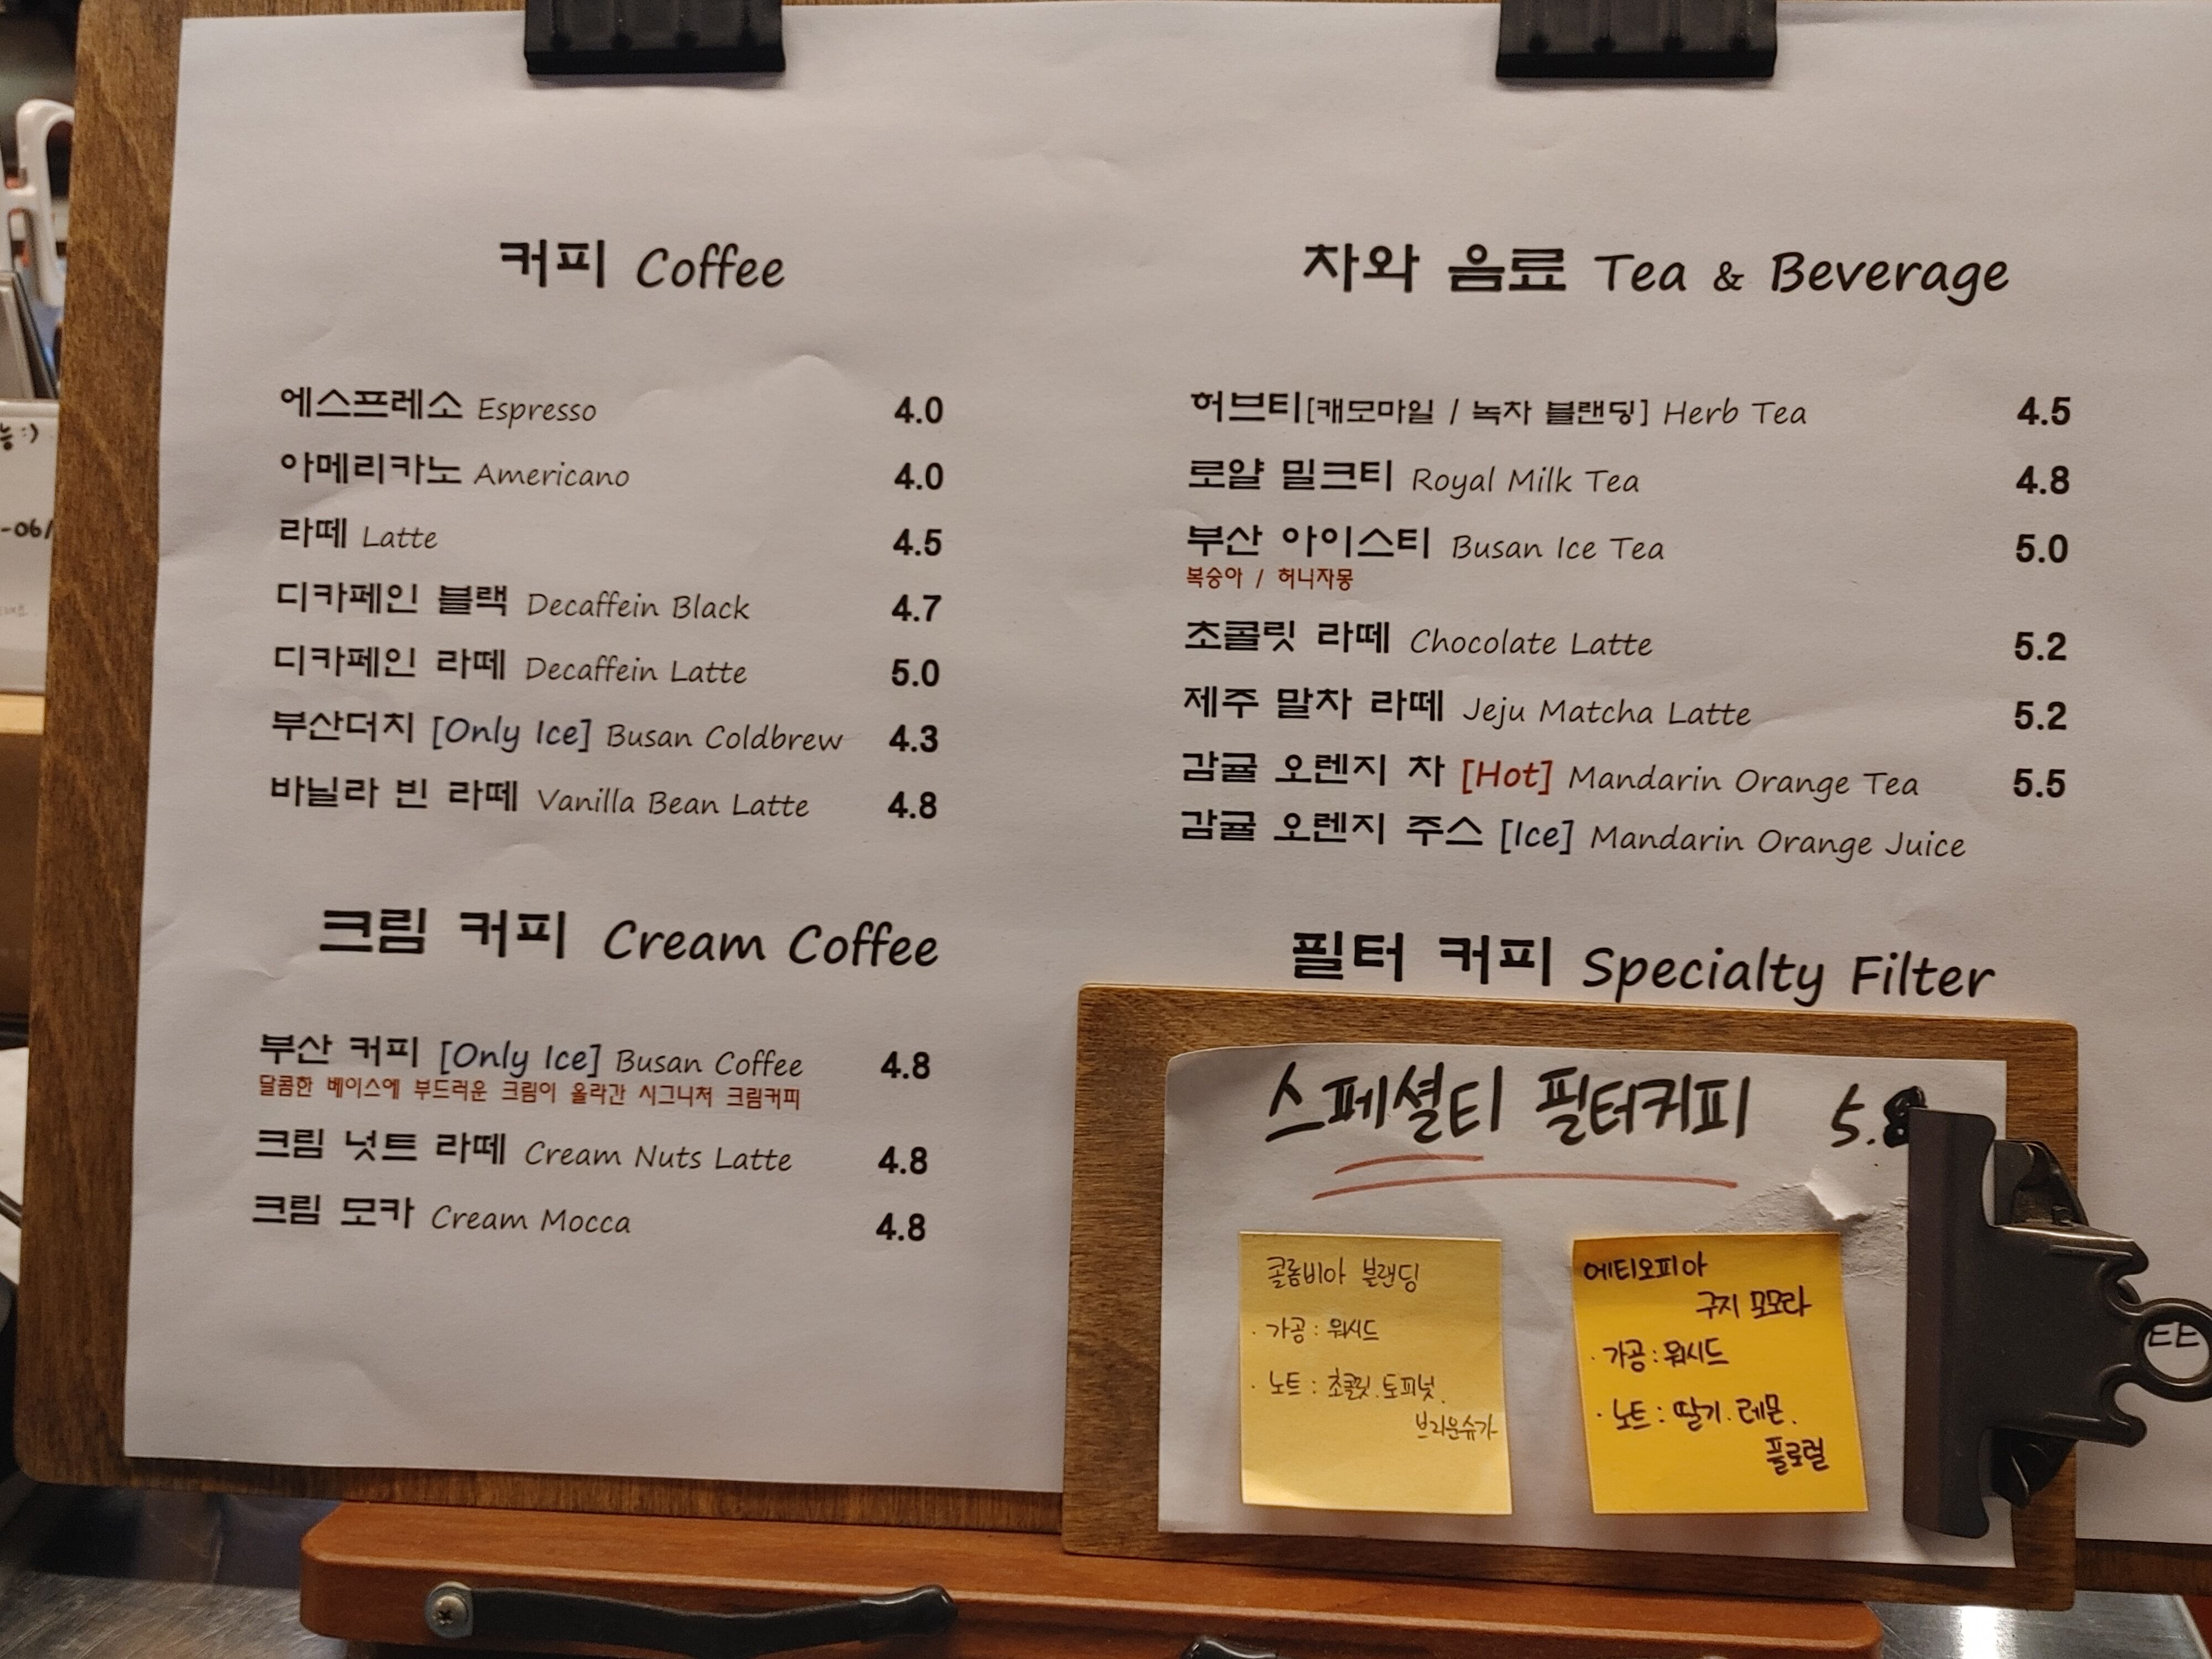 커피 Coffee
에스프레소 Espresso 4.0
아메리카노 Americano 4.0
라떼 Latte 4.5
디카페인 블랙 Decaffein Black 4.7
디카페인 라떼 Decaffein Latte 5.0
부산더치 [Only Ice] Busan Coldbrew 4.3
바닐라 빈 라떼 Vanilla Bean Latte 4.8
크림 커피 Cream Coffee
부산 커피 [Only Ice] Busan Coffee 4.8
달콤한 베이스에 부드러운 크림이 올라간 시그니처 크림커피
크림 넛트 라떼 Cream Nuts Latte 4.8
크림 모카 Cream Mocca 4.8
차와 음료 Tea & Beverage
허브티[캐모마일 / 녹차 블랜딩] Herb Tea 4.5
로얄 밀크티 Royal Milk Tea 4.8
부산 아이스티 Busan Ice Tea 5.0
복숭아 / 허니자몽
초콜릿 라떼 Chocolate Latte 5.2
제주 말차 라떼 Jeju Matcha Latte 5.2
감귤 오렌지 차 [Hot] Mandarin Orange Tea 5.5
감귤 오렌지 주스 [Ice] Mandarin Orange Juice
필터 커피 Specialty Filter
스페셜티 필터커피 5.8
콜롬비아 블랜딩
· 가공 : 워시드
· 노트 : 초콜릿. 토피넛.
브라운슈가
에티오피아
구지 모모라
· 가공 : 워시드
· 노트 : 딸기. 레몬.
플로럴